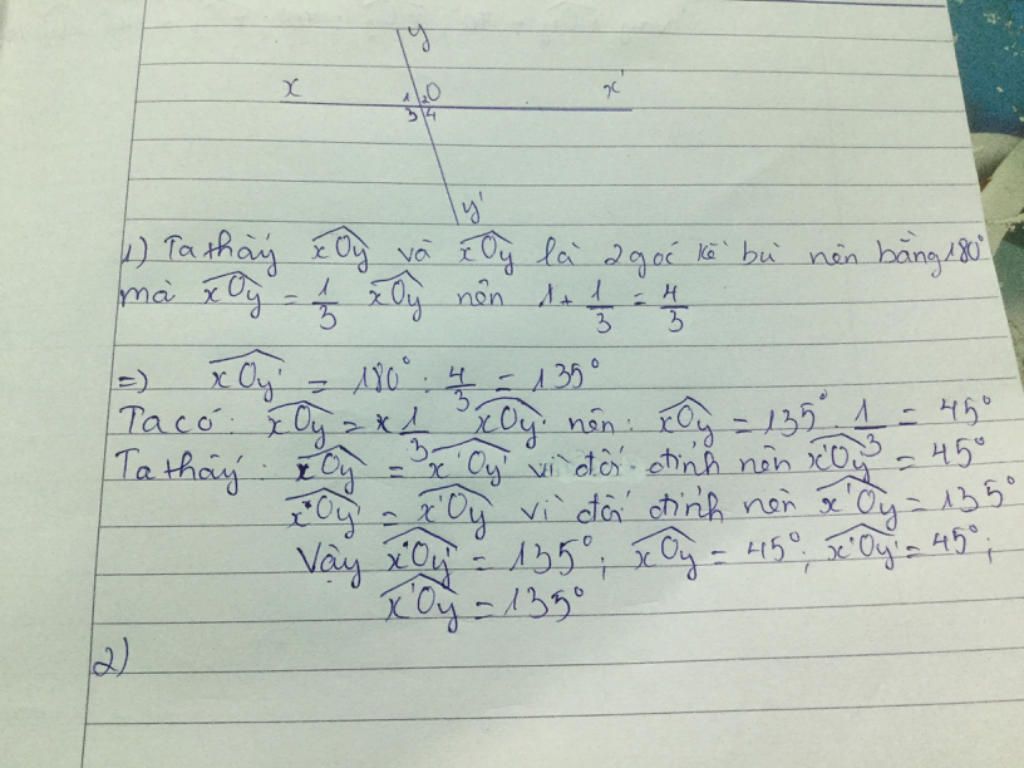 y
x x'
1 2 O
3 4
y'
1) Ta thấy xOy và xOy là 2 góc kề bù nên bằng 180°
mà xOy = 1/3 xOy nên 1 + 1/3 = 4/3
=) xOy' = 180° : 4/3 = 135°
Ta có: xOy = x 1/3 xOy' nên: xOy = 135° . 1/3 = 45°
Ta thấy: xOy = x'Oy' vì đối đỉnh nên x'Oy' = 45°
xOy' = x'Oy vì đối đỉnh nên x'Oy = 135°
Vậy xOy' = 135°; xOy = 45°; x'Oy' = 45°;
x'Oy = 135°
2)